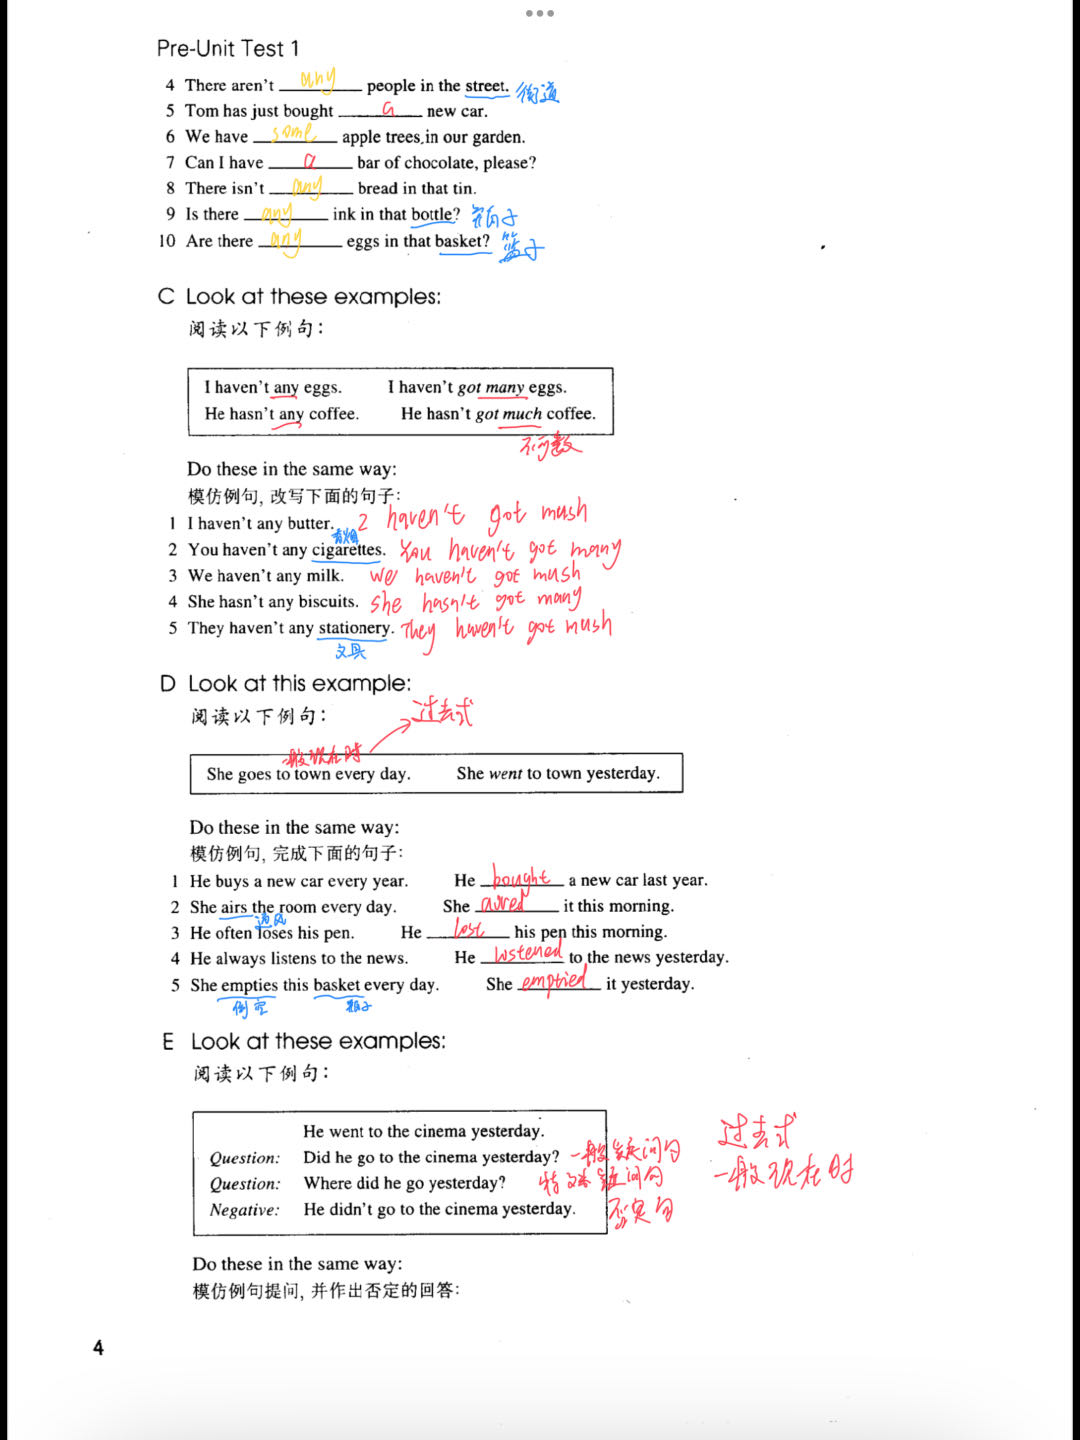 Pre-Unit Test 1
4 There aren't any people in the street. 街道
5 Tom has just bought a new car.
6 We have some apple trees in our garden.
7 Can I have a bar of chocolate, please?
8 There isn't any bread in that tin.
9 Is there any ink in that bottle? 瓶子
10 Are there any eggs in that basket? 篮子
C Look at these examples:
阅读以下例句:
I haven't any eggs. I haven't got many eggs.
He hasn't any coffee. He hasn't got much coffee.
不可数
Do these in the same way:
模仿例句, 改写下面的句子:
1 I haven't any butter. I haven't got mush
香烟
2 You haven't any cigarettes. You haven't got many
3 We haven't any milk. We haven't got mush
4 She hasn't any biscuits. She hasn't got many
5 They haven't any stationery. They haven't got mush
文具
D Look at this example:
过去式
阅读以下例句:
一般现在时
She goes to town every day. She went to town yesterday.
Do these in the same way:
模仿例句, 完成下面的句子:
1 He buys a new car every year. He bought a new car last year.
2 She airs the room every day. She aired it this morning.
通风
3 He often loses his pen. He lost his pen this morning.
4 He always listens to the news. He lostened to the news yesterday.
5 She empties this basket every day. She emptied it yesterday.
倒空 瓶子
E Look at these examples:
阅读以下例句:
He went to the cinema yesterday. 过去式
Question: Did he go to the cinema yesterday? 一般疑问句 一般现在时
Question: Where did he go yesterday? 特殊疑问句
Negative: He didn't go to the cinema yesterday. 否定句
Do these in the same way:
模仿例句提问, 并作出否定的回答:
4